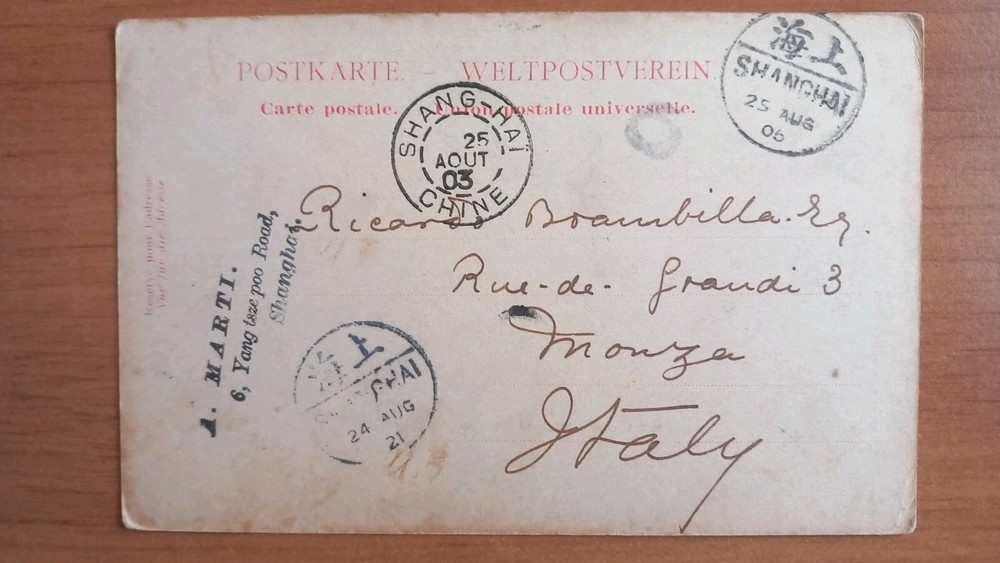 POSTKARTE. – WELTPOSTVEREIN.
Carte postale. Union postale universelle.
海上
SHANGHAI
25 AUG
05
SHANG-HAÏ
25
AOUT
03
CHINE
Ricardo Brambilla. Esq.
Rue-de-Grandi 3
Monza
Italy
A. MARTI.
6, Yang tsze poo Road,
Shanghai.
海上
SHANGHAI
24 AUG
21
Reservé pour l'adresse